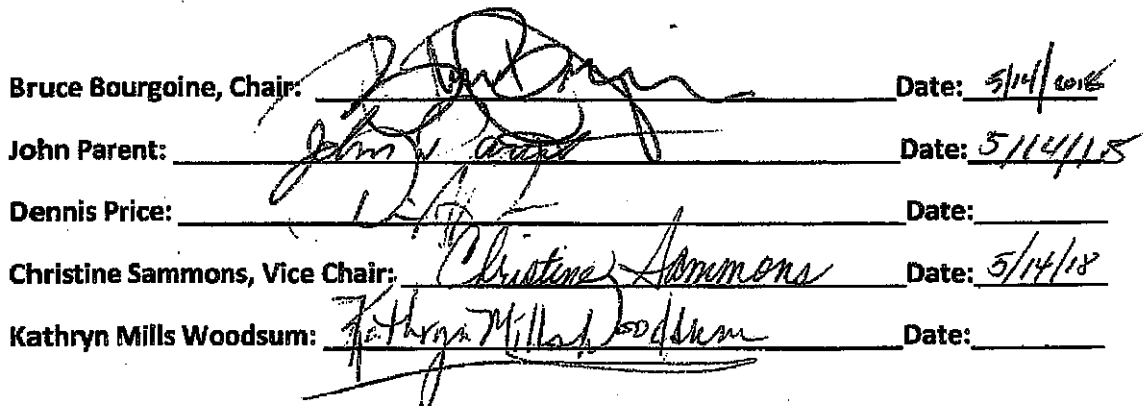 Bruce Bourgoine, Chair: Date: 5/14/2018
John Parent: John Parent Date: 5/14/18
Dennis Price: Date:
Christine Sammons, Vice Chair: Christine Sammons Date: 5/14/18
Kathryn Mills Woodsum: Kathryn Mills Woodsum Date: